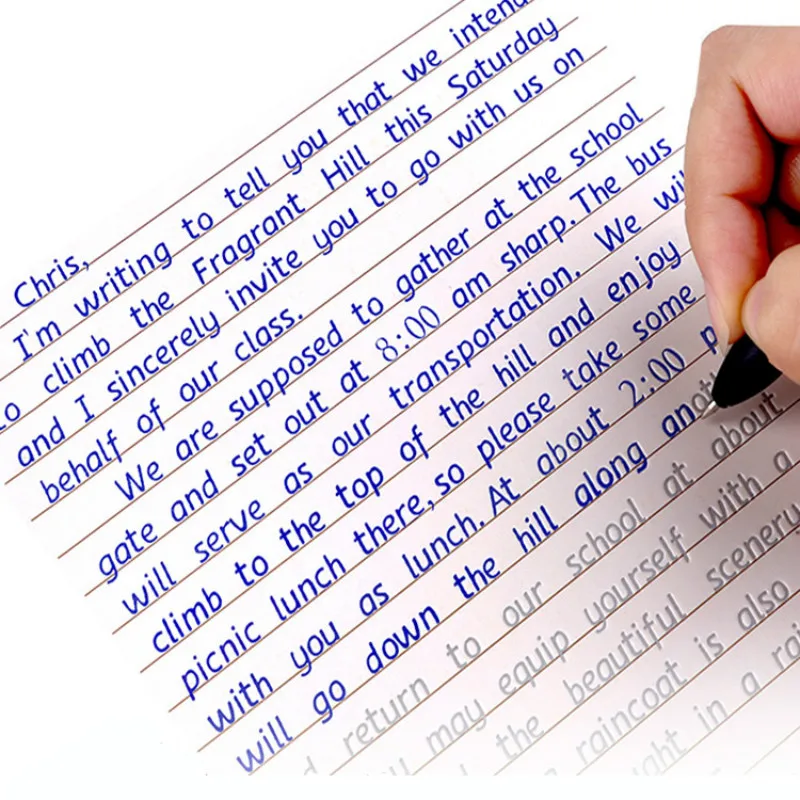 Chris,
I'm writing to tell you that we intend
to climb the Fragrant Hill this Saturday
and I sincerely invite you to go with us on
behalf of our class.
We are supposed to gather at the school
gate and set out at 8:00 am sharp. The bus
will serve as our transportation. We will
climb to the top of the hill and enjoy
picnic lunch there, so please take some
with you as lunch. At about 2:00 p
will go down the hill along anoth
return to our school at about
may equip yourself with a
the beautiful scenery
raincoat is also
in a